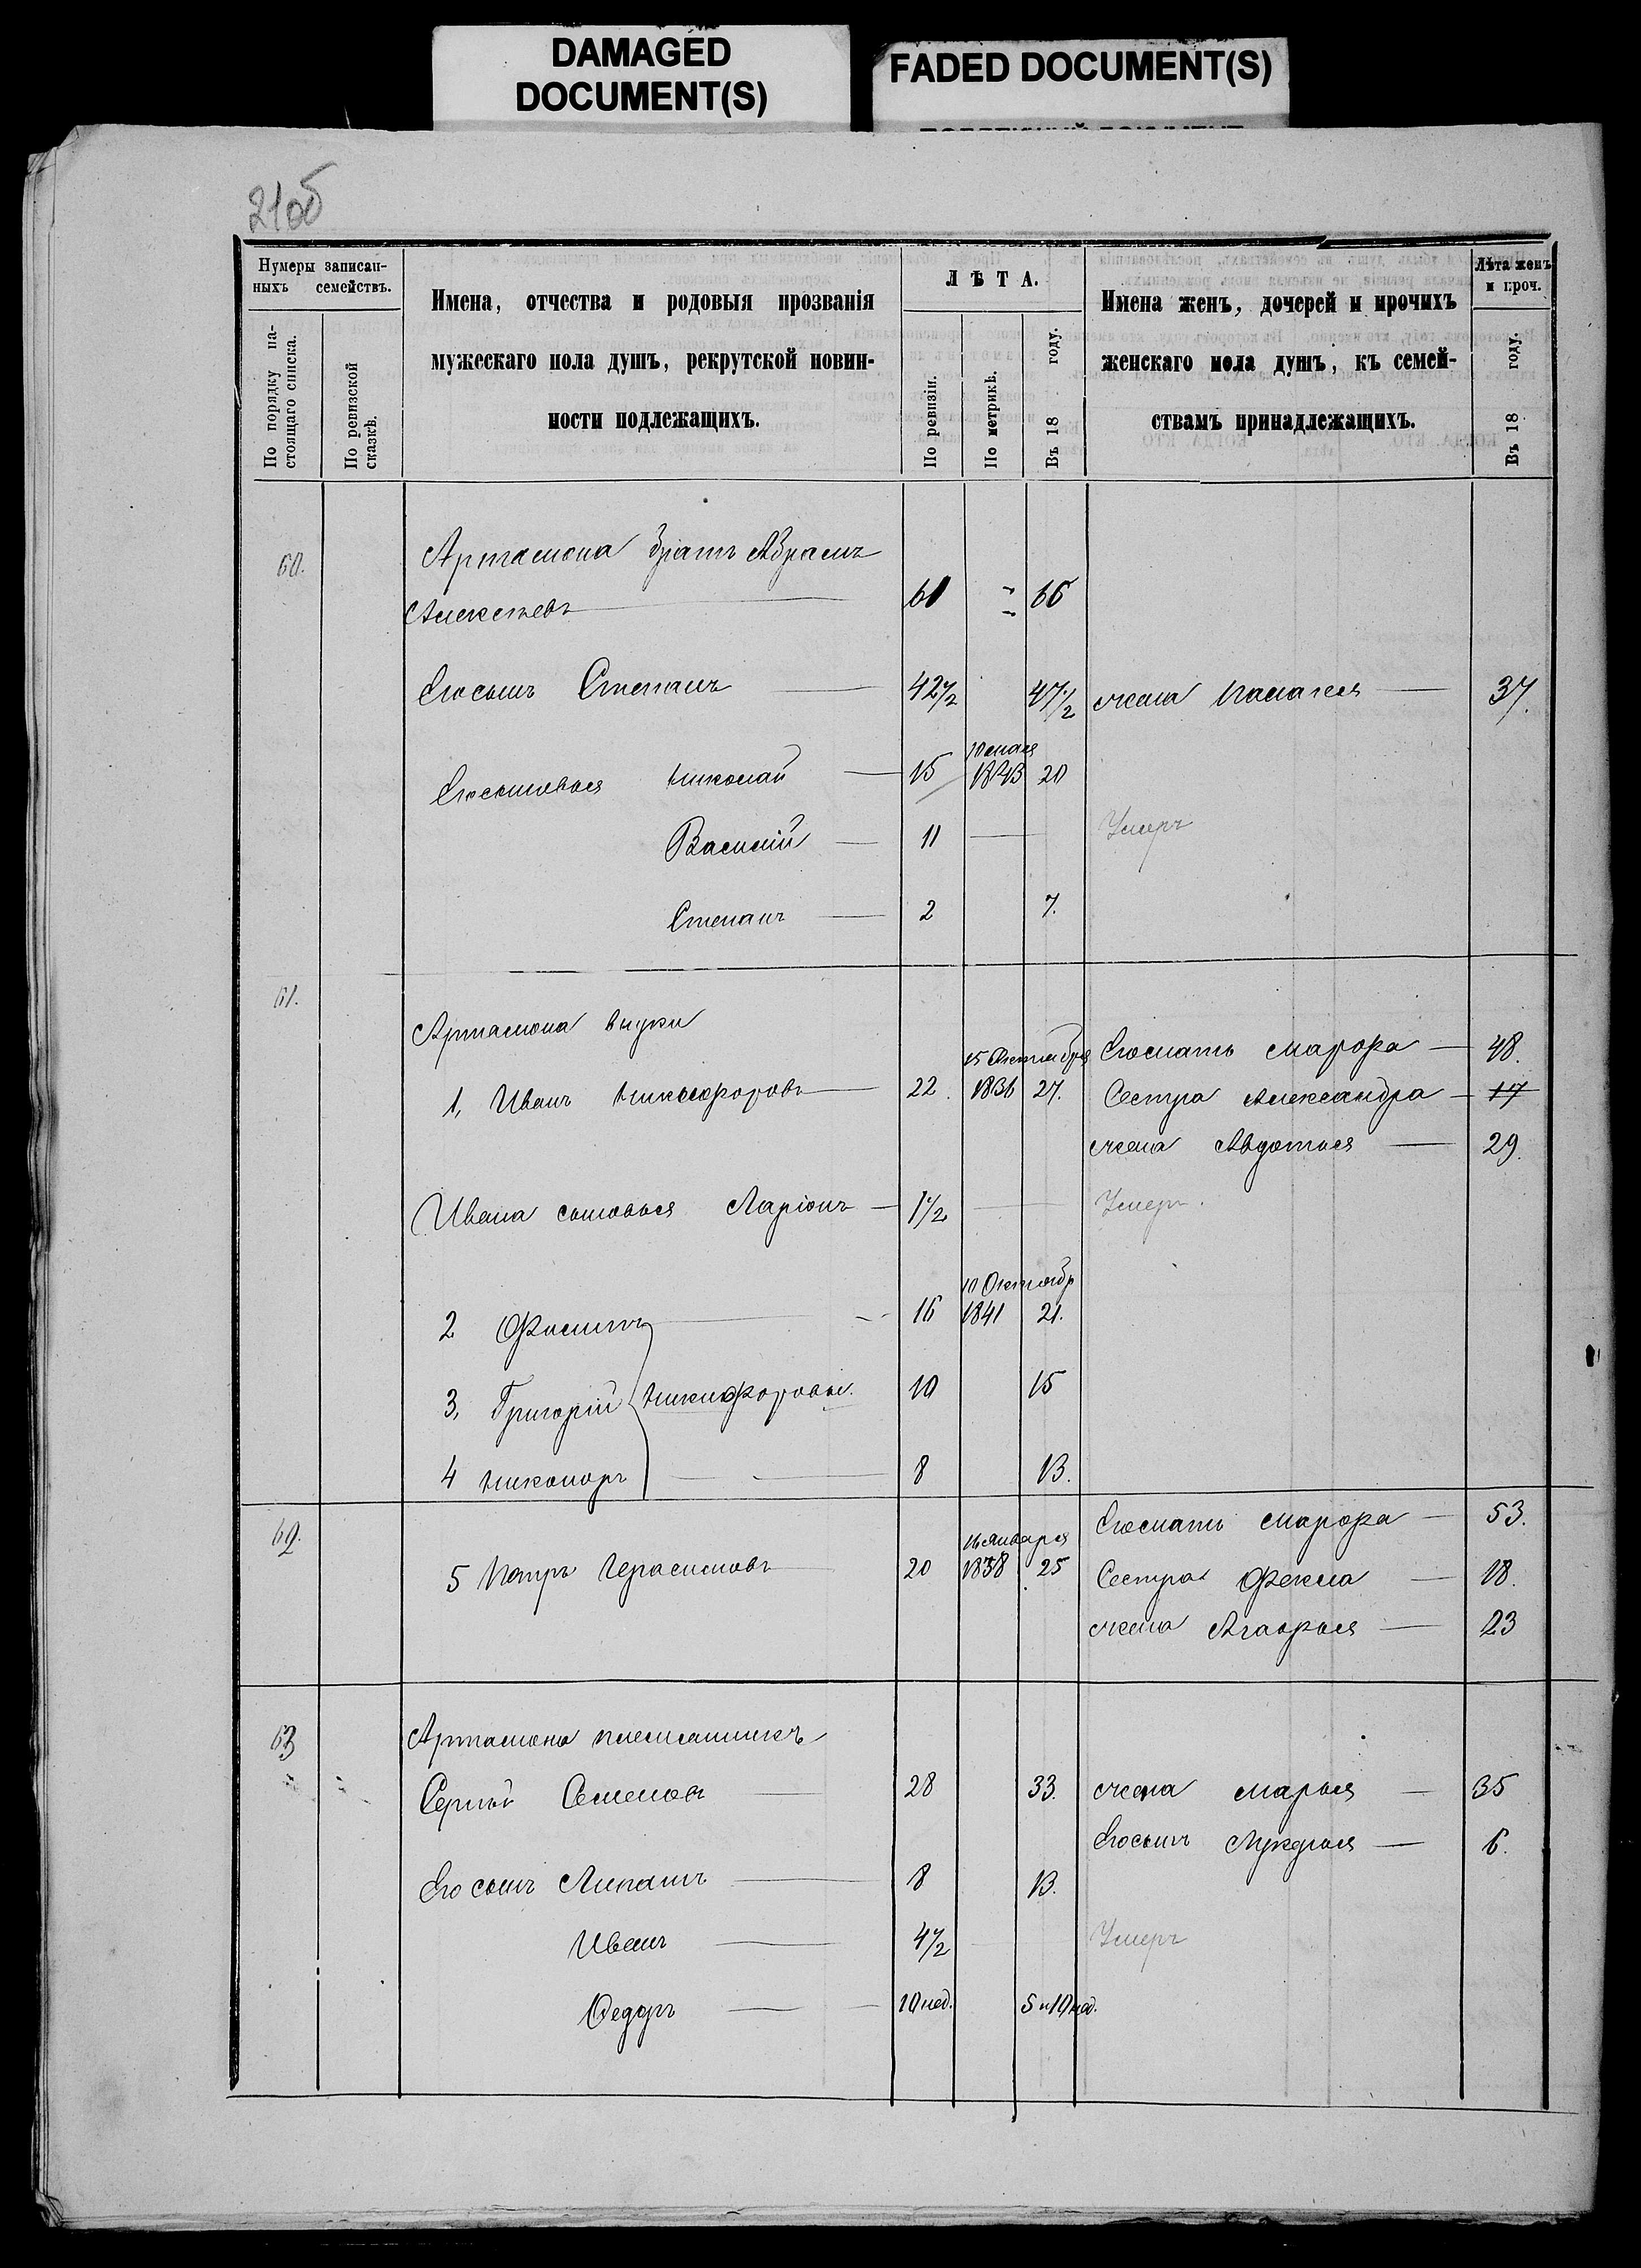 DAMAGED
DOCUMENT(S)
FADED DOCUMENT(S)
21об
Нумеры записан-
ныхъ семействъ.
По порядку на-
стоящаго списка.
По ревизской
сказкѣ.
Имена, отчества и родовыя прозванія
мужескаго пола душъ, рекрутской повин-
ности подлежащихъ.
ЛѢТА.
По ревизіи.
По метрикѣ.
Въ 18 году.
Имена женъ, дочерей и прочихъ
женскаго пола душъ, къ семей-
ствамъ принадлежащихъ.
Лѣта женъ
и проч.
Въ 18 году.
60. Артамона братъ Абрамъ
Алексѣевъ 60 66
Егосынъ Степанъ 42½ 47½ жена Палагея 37.
10 мая
Егосыновья Николай 15 1843 20
Василій 11 Умеръ
Степанъ 2 7.
61.
Артамона внуки
15 Октября Егомать Марфа 48.
1, Иванъ Никифоровъ 22. 1836 27. Сестра Александра 17
жена Авдотья 29.
Ивана сыновья Ларіонъ 1½ Умеръ.
10 Октябр
2 Филипъ 16 1841 21.
3, Григорій Никифоровы. 10 15
4 Никаноръ 8 13.
62. Егомать Марфа 53.
16 Января
5 Петръ Герасимовъ 20 1838 25 Сестра Фекла 18.
жена Агафья 23
63 Артамона племянникъ
Сергѣй Семеновъ 28 33. жена Марья 35
Егосынъ Лукерья 6.
Его сынъ Липатъ 8 13.
Иванъ 4½ Умеръ
Федоръ 10 нед. 5 и 10 нед.